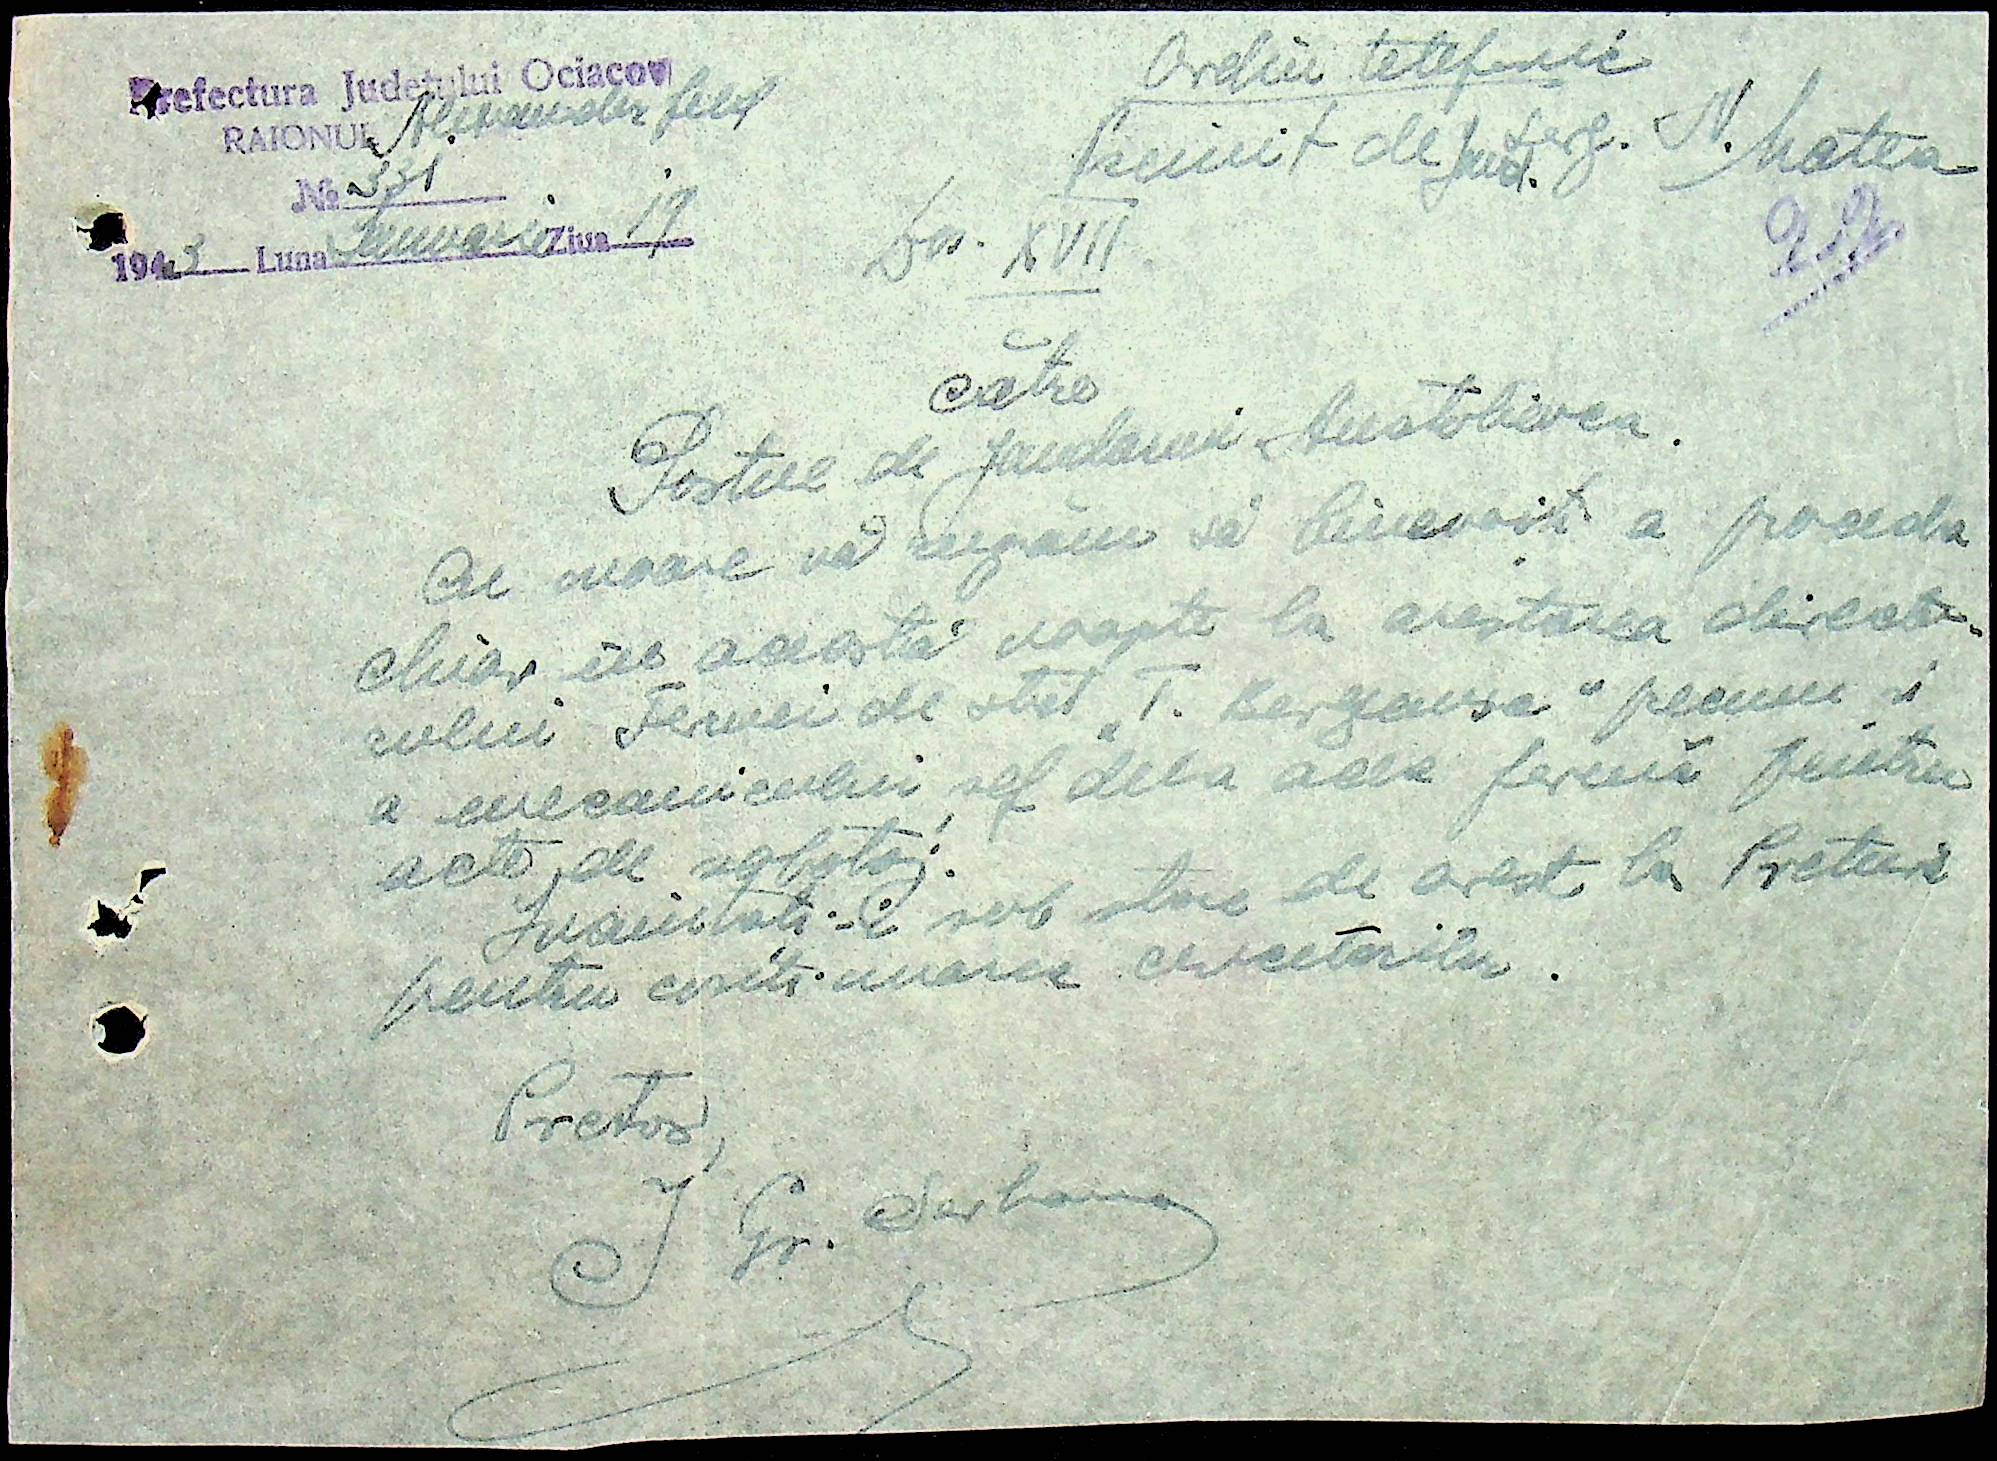 Prefectura Județului Ociacov
RAIONUL Alexanderfeld
№ 331
1943 Luna Ianuarie Ziua 19
Ordin telefonic
Primit de Jand. Serg. N. Matea
Dos. XVII
către
Postul de Jandarmi
Cu onoare vă rugăm să binevoiți a proceda
chiar în această noapte la arestarea directo-
rului Fermei de stat „T. " precum și
a mecanicului șef dela acea fermă pentru
acte de sabotaj.
Înaintați-i sub stare de arest la Pretură
pentru continuarea cercetărilor.
Pretor,
Gr. Serbanu